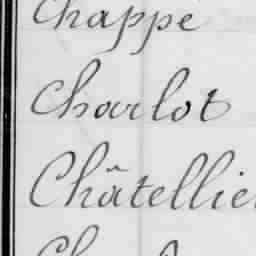 Chappe
Charlot
Châtellier